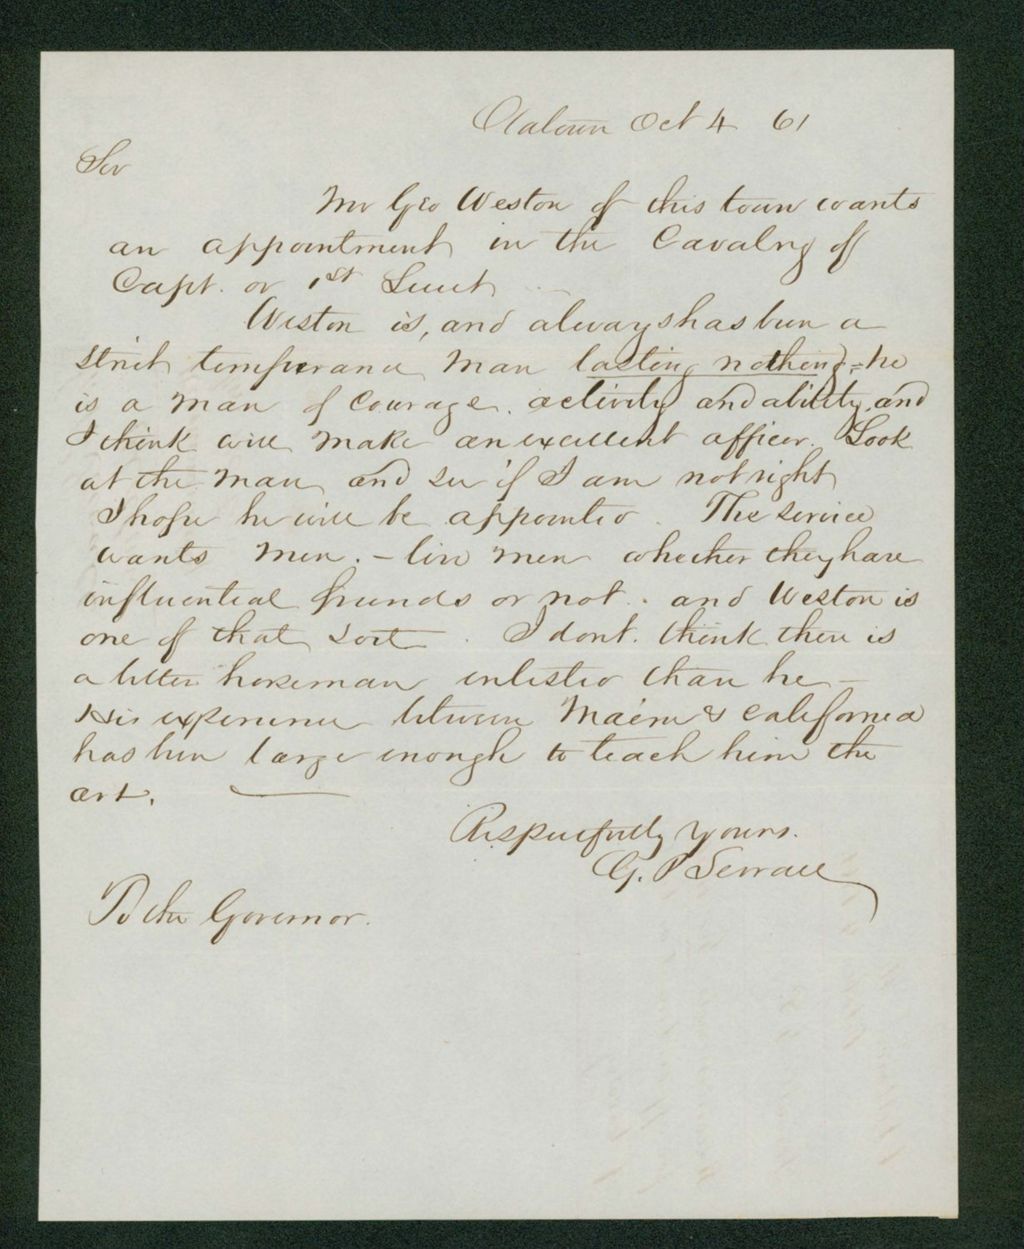 Oldtown Oct 4 61
Sir
Mr Geo Weston of this town wants
an appointment in the Cavalry of
Capt. or 1st Lieut
Weston is, and always has been a
strict temperance man tasting nothing, - he
is a man of courage. activity and ability, and
I think will make an excellent officer. Look
at the man and see if I am not right
I hope he will be appointed. The service
wants men. - live men whether they have
influential friends or not. and Weston is
one of that sort. I dont. think there is
a better horseman enlisted than he -
His experience between Maine & California
has been large enough to teach him the
art.
Respectfully yours.
G. P Sewall
To the Governor.